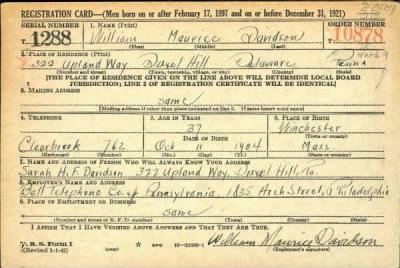 REGISTRATION CARD—(Men born on or after February 17, 1897 and on or before December 31, 1921)
SERIAL NUMBER 1. NAME (Print) ORDER NUMBER
T 1288 William Maurice Davidson 10878
(First) (Middle) (Last)
2. PLACE OF RESIDENCE (Print)
322 Upland Way Drexel Hill Delaware Penna
(Number and street) (Town, township, village, or city) (County) (State)
[THE PLACE OF RESIDENCE GIVEN ON THE LINE ABOVE WILL DETERMINE LOCAL BOARD
JURISDICTION; LINE 2 OF REGISTRATION CERTIFICATE WILL BE IDENTICAL]
3. MAILING ADDRESS
same
[Mailing address if other than place indicated on line 2. If same insert word same]
4. TELEPHONE 5. AGE IN YEARS 6. PLACE OF BIRTH
37 Winchester
DATE OF BIRTH (Town or county)
Clearbrook 762 Oct 11 1904 Mass.
(Exchange) (Number) (Mo.) (Day) (Yr.) (State or country)
7. NAME AND ADDRESS OF PERSON WHO WILL ALWAYS KNOW YOUR ADDRESS
Sarah H. F. Davidson 322 Upland Way, Drexel Hill, Pa.
8. EMPLOYER'S NAME AND ADDRESS
Bell Telephone Co. of Pennsylvania 1835 Arch Street, Philadelphia
9. PLACE OF EMPLOYMENT OR BUSINESS
same
(Number and street or R. F. D. number) (Town) (County) (State)
I AFFIRM THAT I HAVE VERIFIED ABOVE ANSWERS AND THAT THEY ARE TRUE.
D. S. S. Form 1
(Revised 1-1-42) GPO William Maurice Davidson